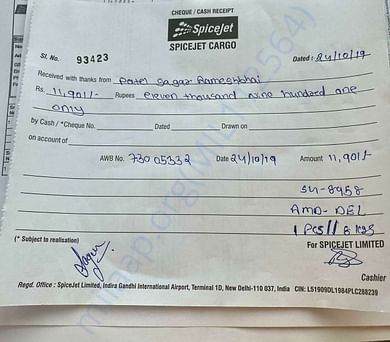 CHEQUE / CASH RECEIPT
SpiceJet
SPICEJET CARGO
Sl. No. 93423 Dated : 24/10/19
Received with thanks from Patel Sagar Rameshbhai
Rs. 11,901/- Rupees eleven thousand nine hundred one
only
by Cash / *Cheque No. Dated Drawn on
on account of
AWB No. 730 05332 Date 24/10/19 Amount 11,901/-
SG-8958
AMD-DEL
1 Pcs // 8 kgs
(* Subject to realisation) For SPICEJET LIMITED
Cashier
Regd. Office : SpiceJet Limited, Indira Gandhi International Airport, Terminal 1D, New Delhi-110 037, India CIN: L51909DL1984PLC288239